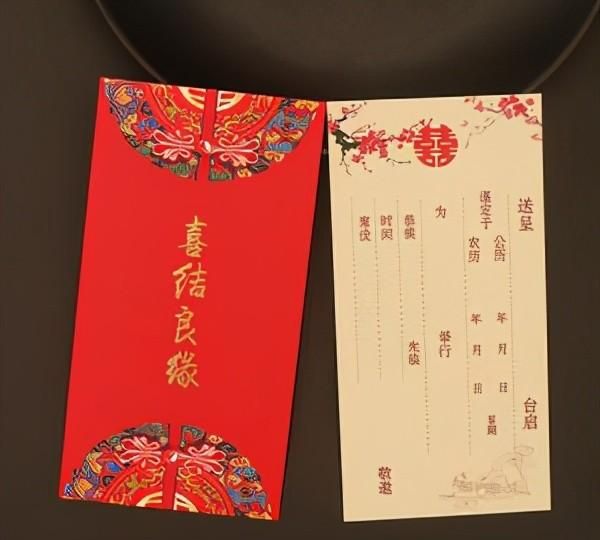 喜结良缘
囍
送呈 台启
谨定于
公历 年 月 日 星期
农历 年 月 日
为 举行
席设
时间
敬邀